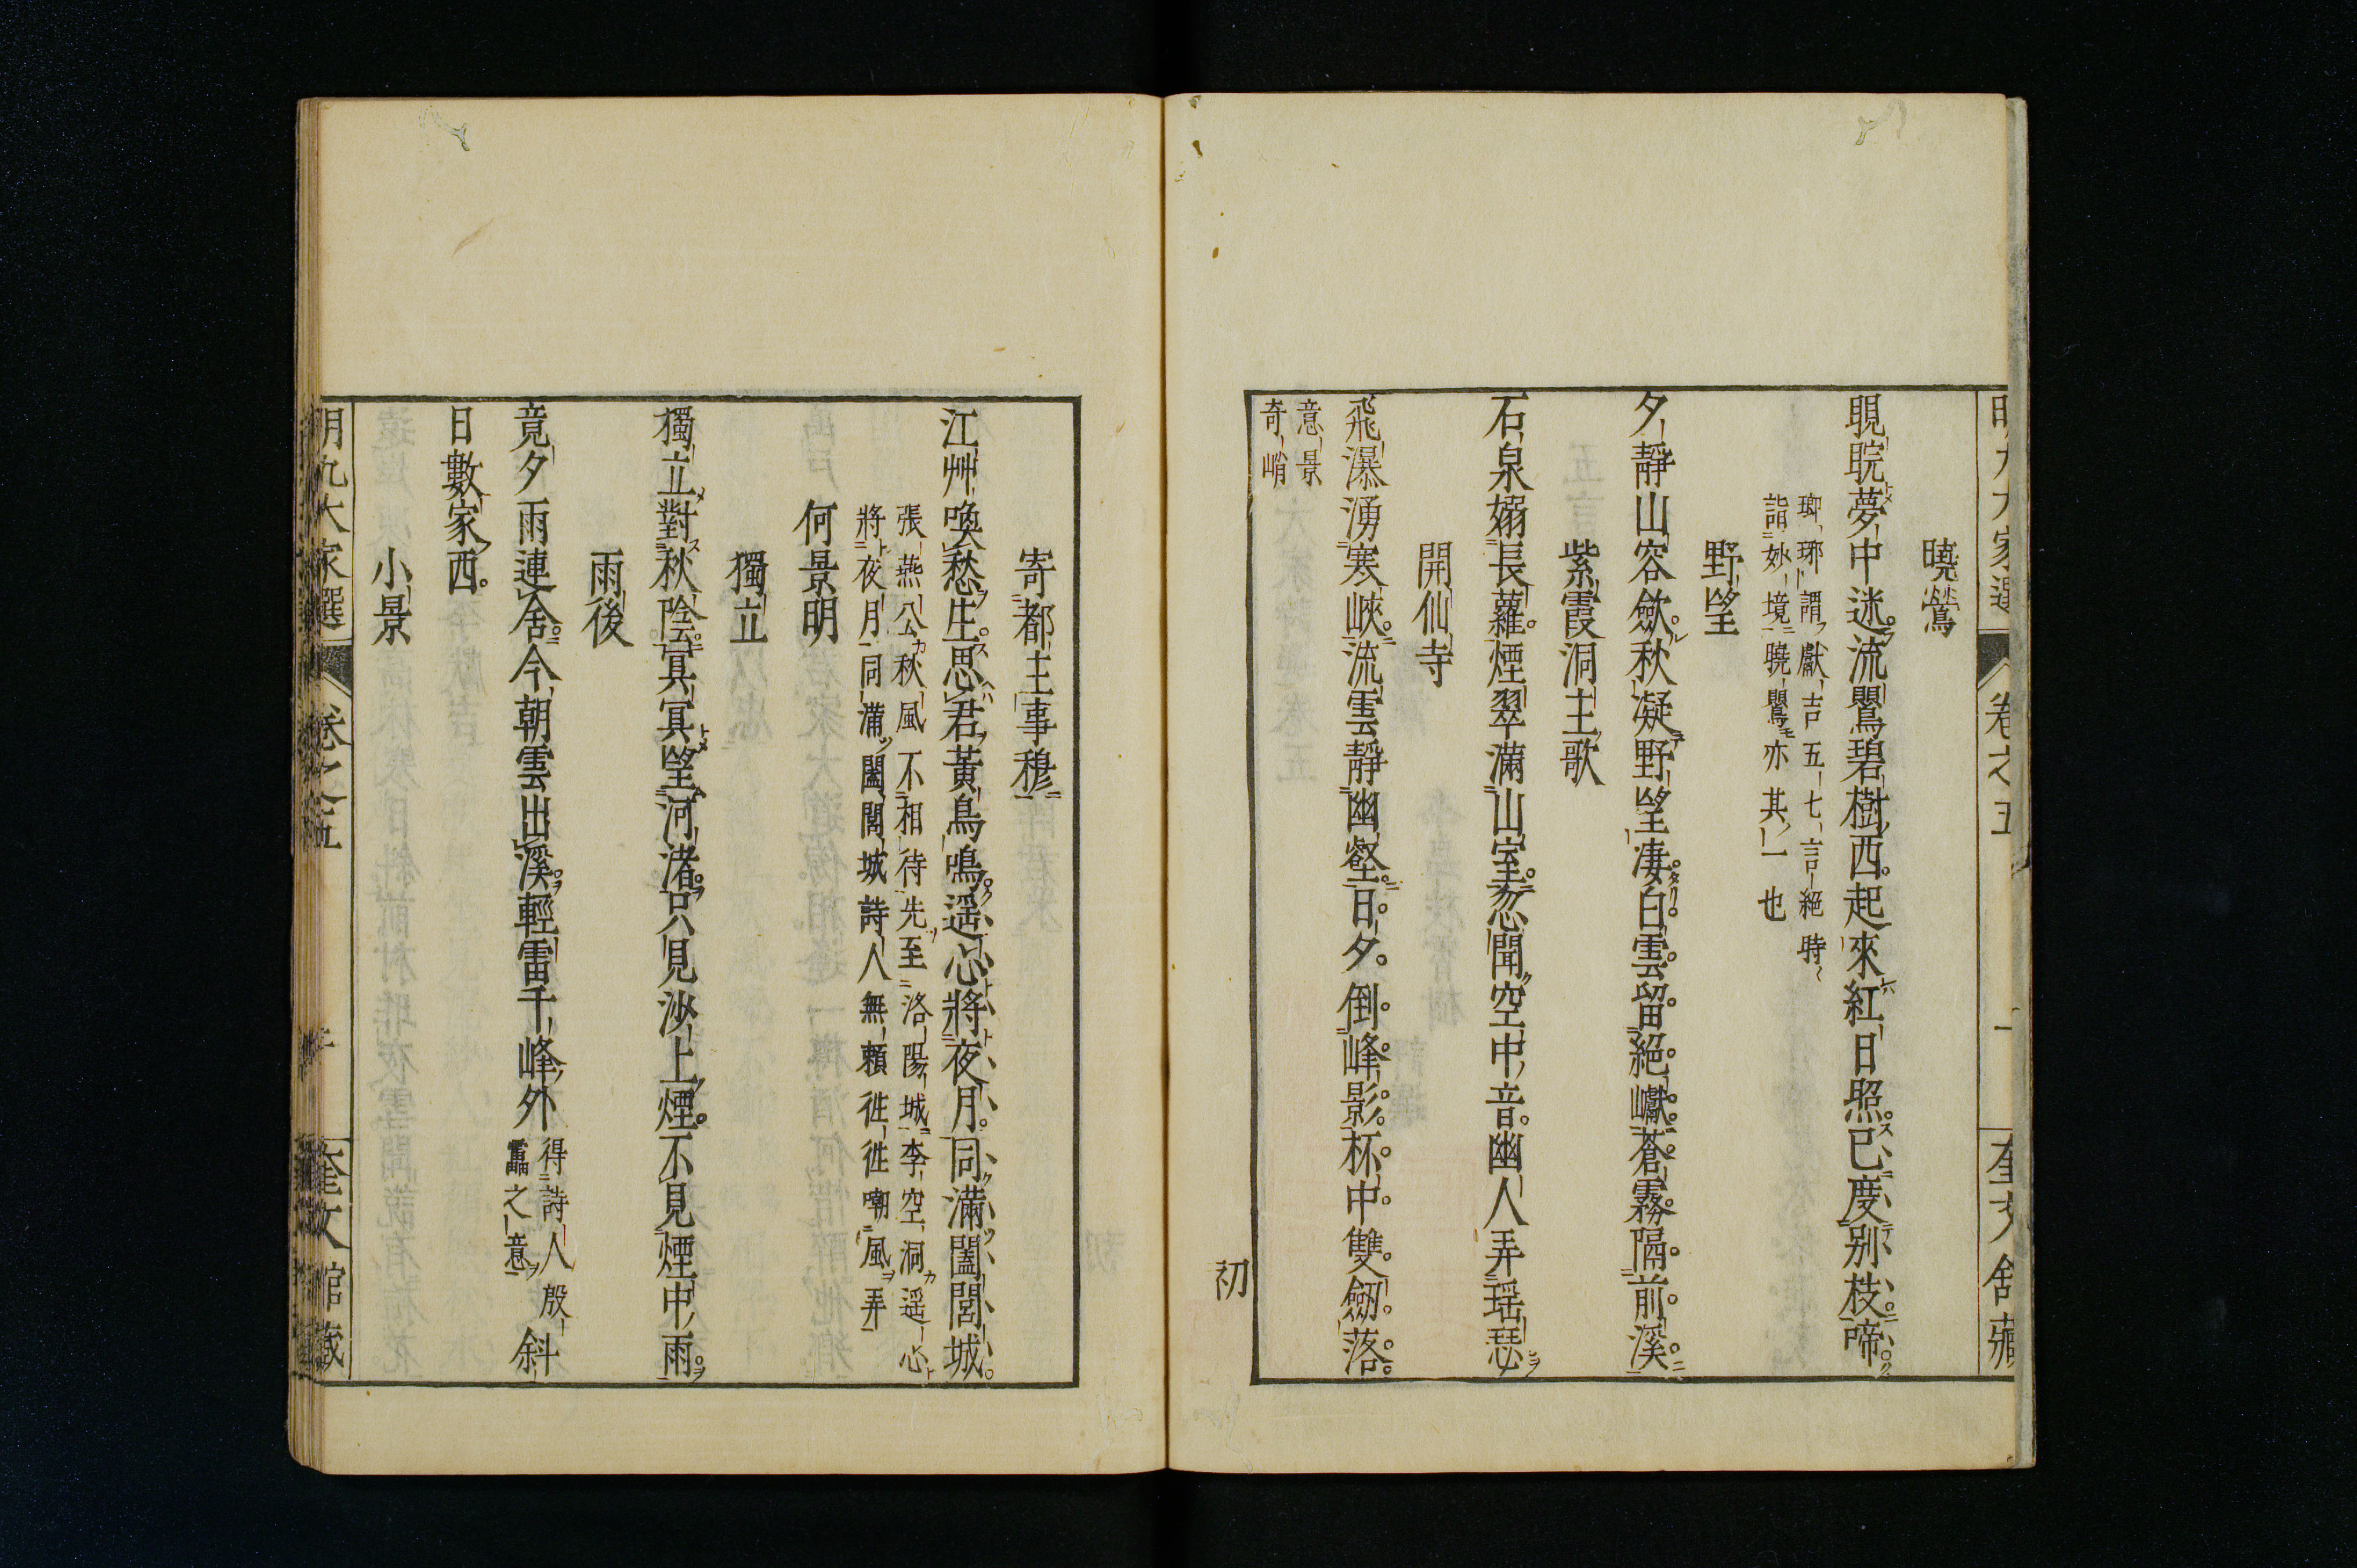 曉鶯
睍睆夢中迷流鶯碧樹西起來紅日照已度別枝啼
瑯琊謂獻吉五七言絕時
詣妙境曉鶯亦其一也
野望
夕靜山容歛秋凝野望凄白雲留絕巘蒼霧隔前溪
紫霞洞主歌
石泉嫋長蘿煙翠滿山室忽聞空中音幽人弄瑶瑟
開仙寺
飛瀑湧寒峽流雲靜幽壑日夕倒峰影杯中雙劒落
意景
奇峭
初
寄都主事穆
江艸喚愁生思君黃鳥鳴遥心將夜月同滿闔閭城
張燕公秋風不相待先至洛陽城李空洞遥心
將夜月同滿闔閭城詩人無賴徃徃嘲風弄
何景明
獨立
獨立對秋陰冥冥望河渚只見沙上煙不見煙中雨
雨後
竟夕雨連舍今朝雲出溪輕雷千峰外
得詩人殷
靁之意
斜
日數家西
小景
明九大家選 卷之五 奎文館藏